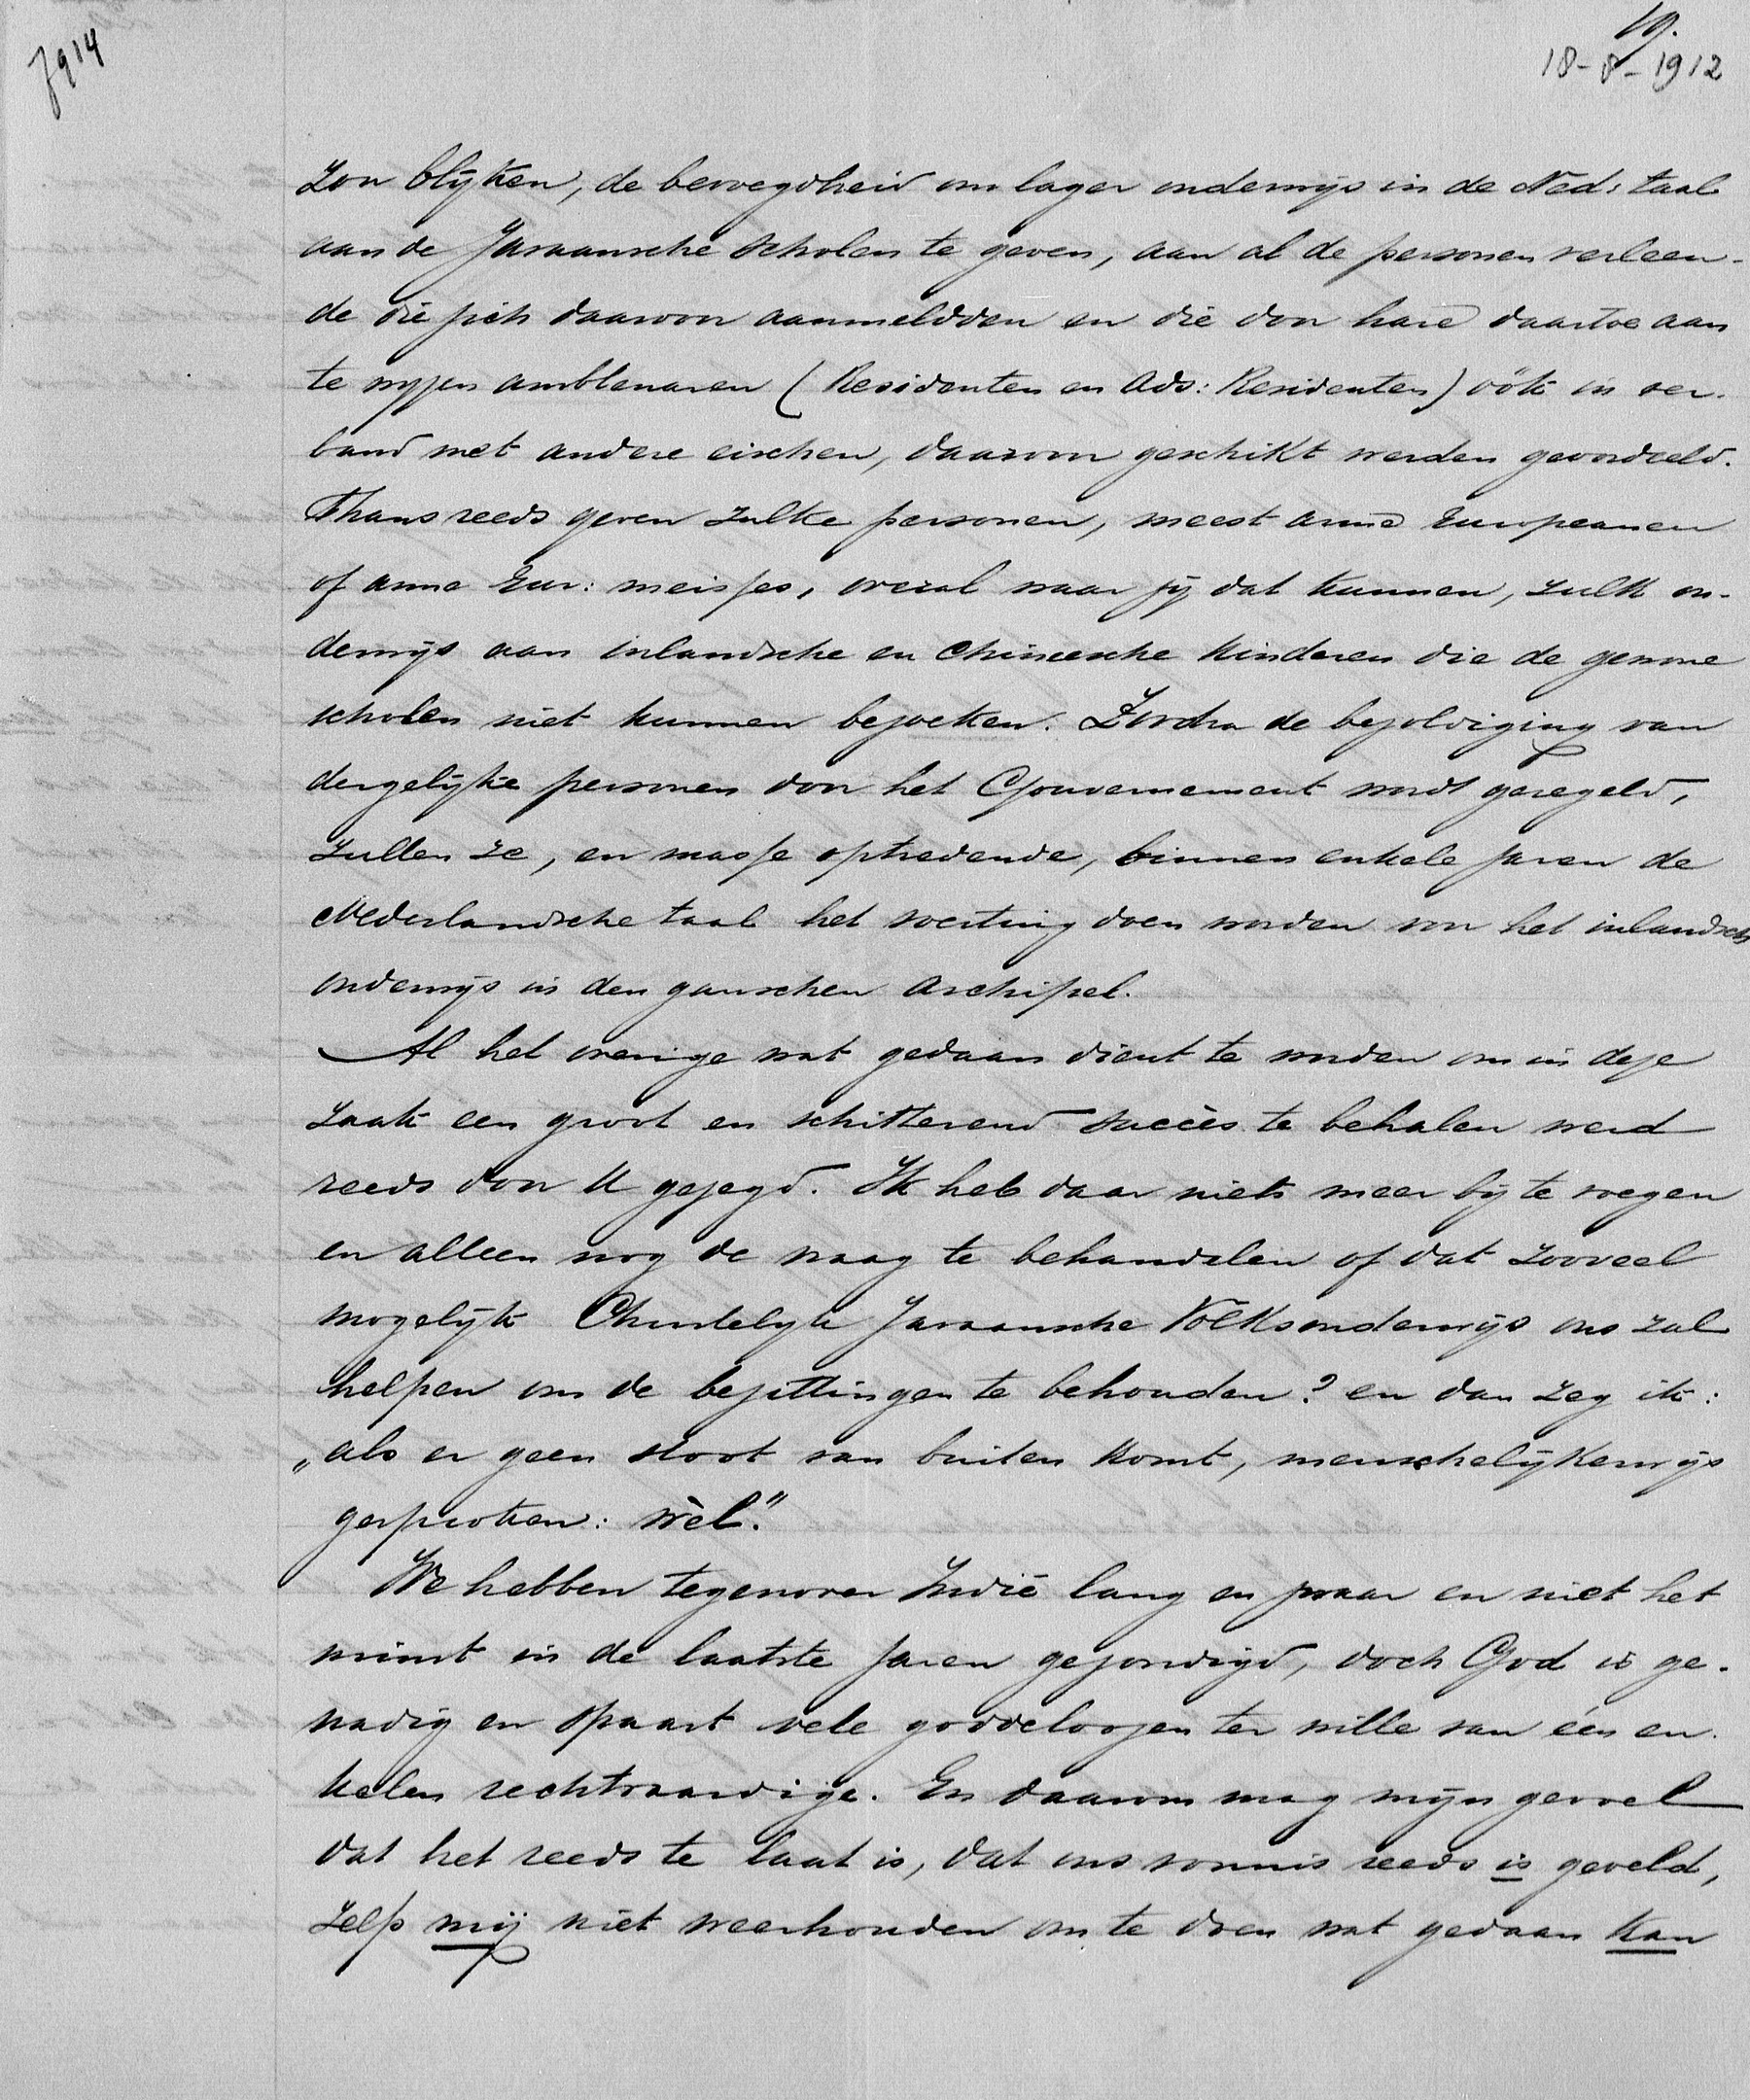 7914
19.
18-8-1912
zou blijken, de bevoegdheid om lager onderwijs in de Ned: taal
aan de Javaansche scholen te geven, aan al de personen verleen-
de die zich daarvoor aanmeldden en die door hare daartoe aan
te wijzen ambtenaren (Residenten en Ads: Residenten) óók in ver-
band met andere eischen, daarvoor geschikt werden geoordeeld.
Thans reeds geven zulke personen, meest arme Europeanen
of arme Eur: meisjes, overal waar zij dat kunnen, zulk on-
derwijs aan inlandsche en Chineesche kinderen die de gewone
scholen niet kunnen bezoeken. Zoodra de bezoldiging van
dergelijke personen door het Gouvernement wordt geregeld,
zullen ze, en masse optredende, binnen enkele jaren de
Nederlandsche taal het voertuig doen worden voor het inlandsch
onderwijs in den ganschen Archipel.
Al het overige wat gedaan dient te worden om in deze
zaak een groot en schitterend succès te behalen werd
reeds door U gezegd. Ik heb daar niets meer bij te voegen
en alleen nog de vraag te behandelen of dat zooveel
mogelijk Christelijk Javaansche Volksonderwijs ons zal
helpen om de bezittingen te behouden? en dan zeg ik:
„als er geen stoot van buiten komt, menschelijkerwijs
gesproken: wèl."
We hebben tegenover Indië lang en zwaar en niet het
minst in de laatste jaren gezondigd, doch God is ge-
nadig en spaart vele goddeloozen ter wille van één en-
kelen rechtvaardige. En daarom mag mijn gevoel
dat het reeds te laat is, dat ons vonnis reeds is geveld,
zelfs mij niet weerhouden om te doen wat gedaan kan